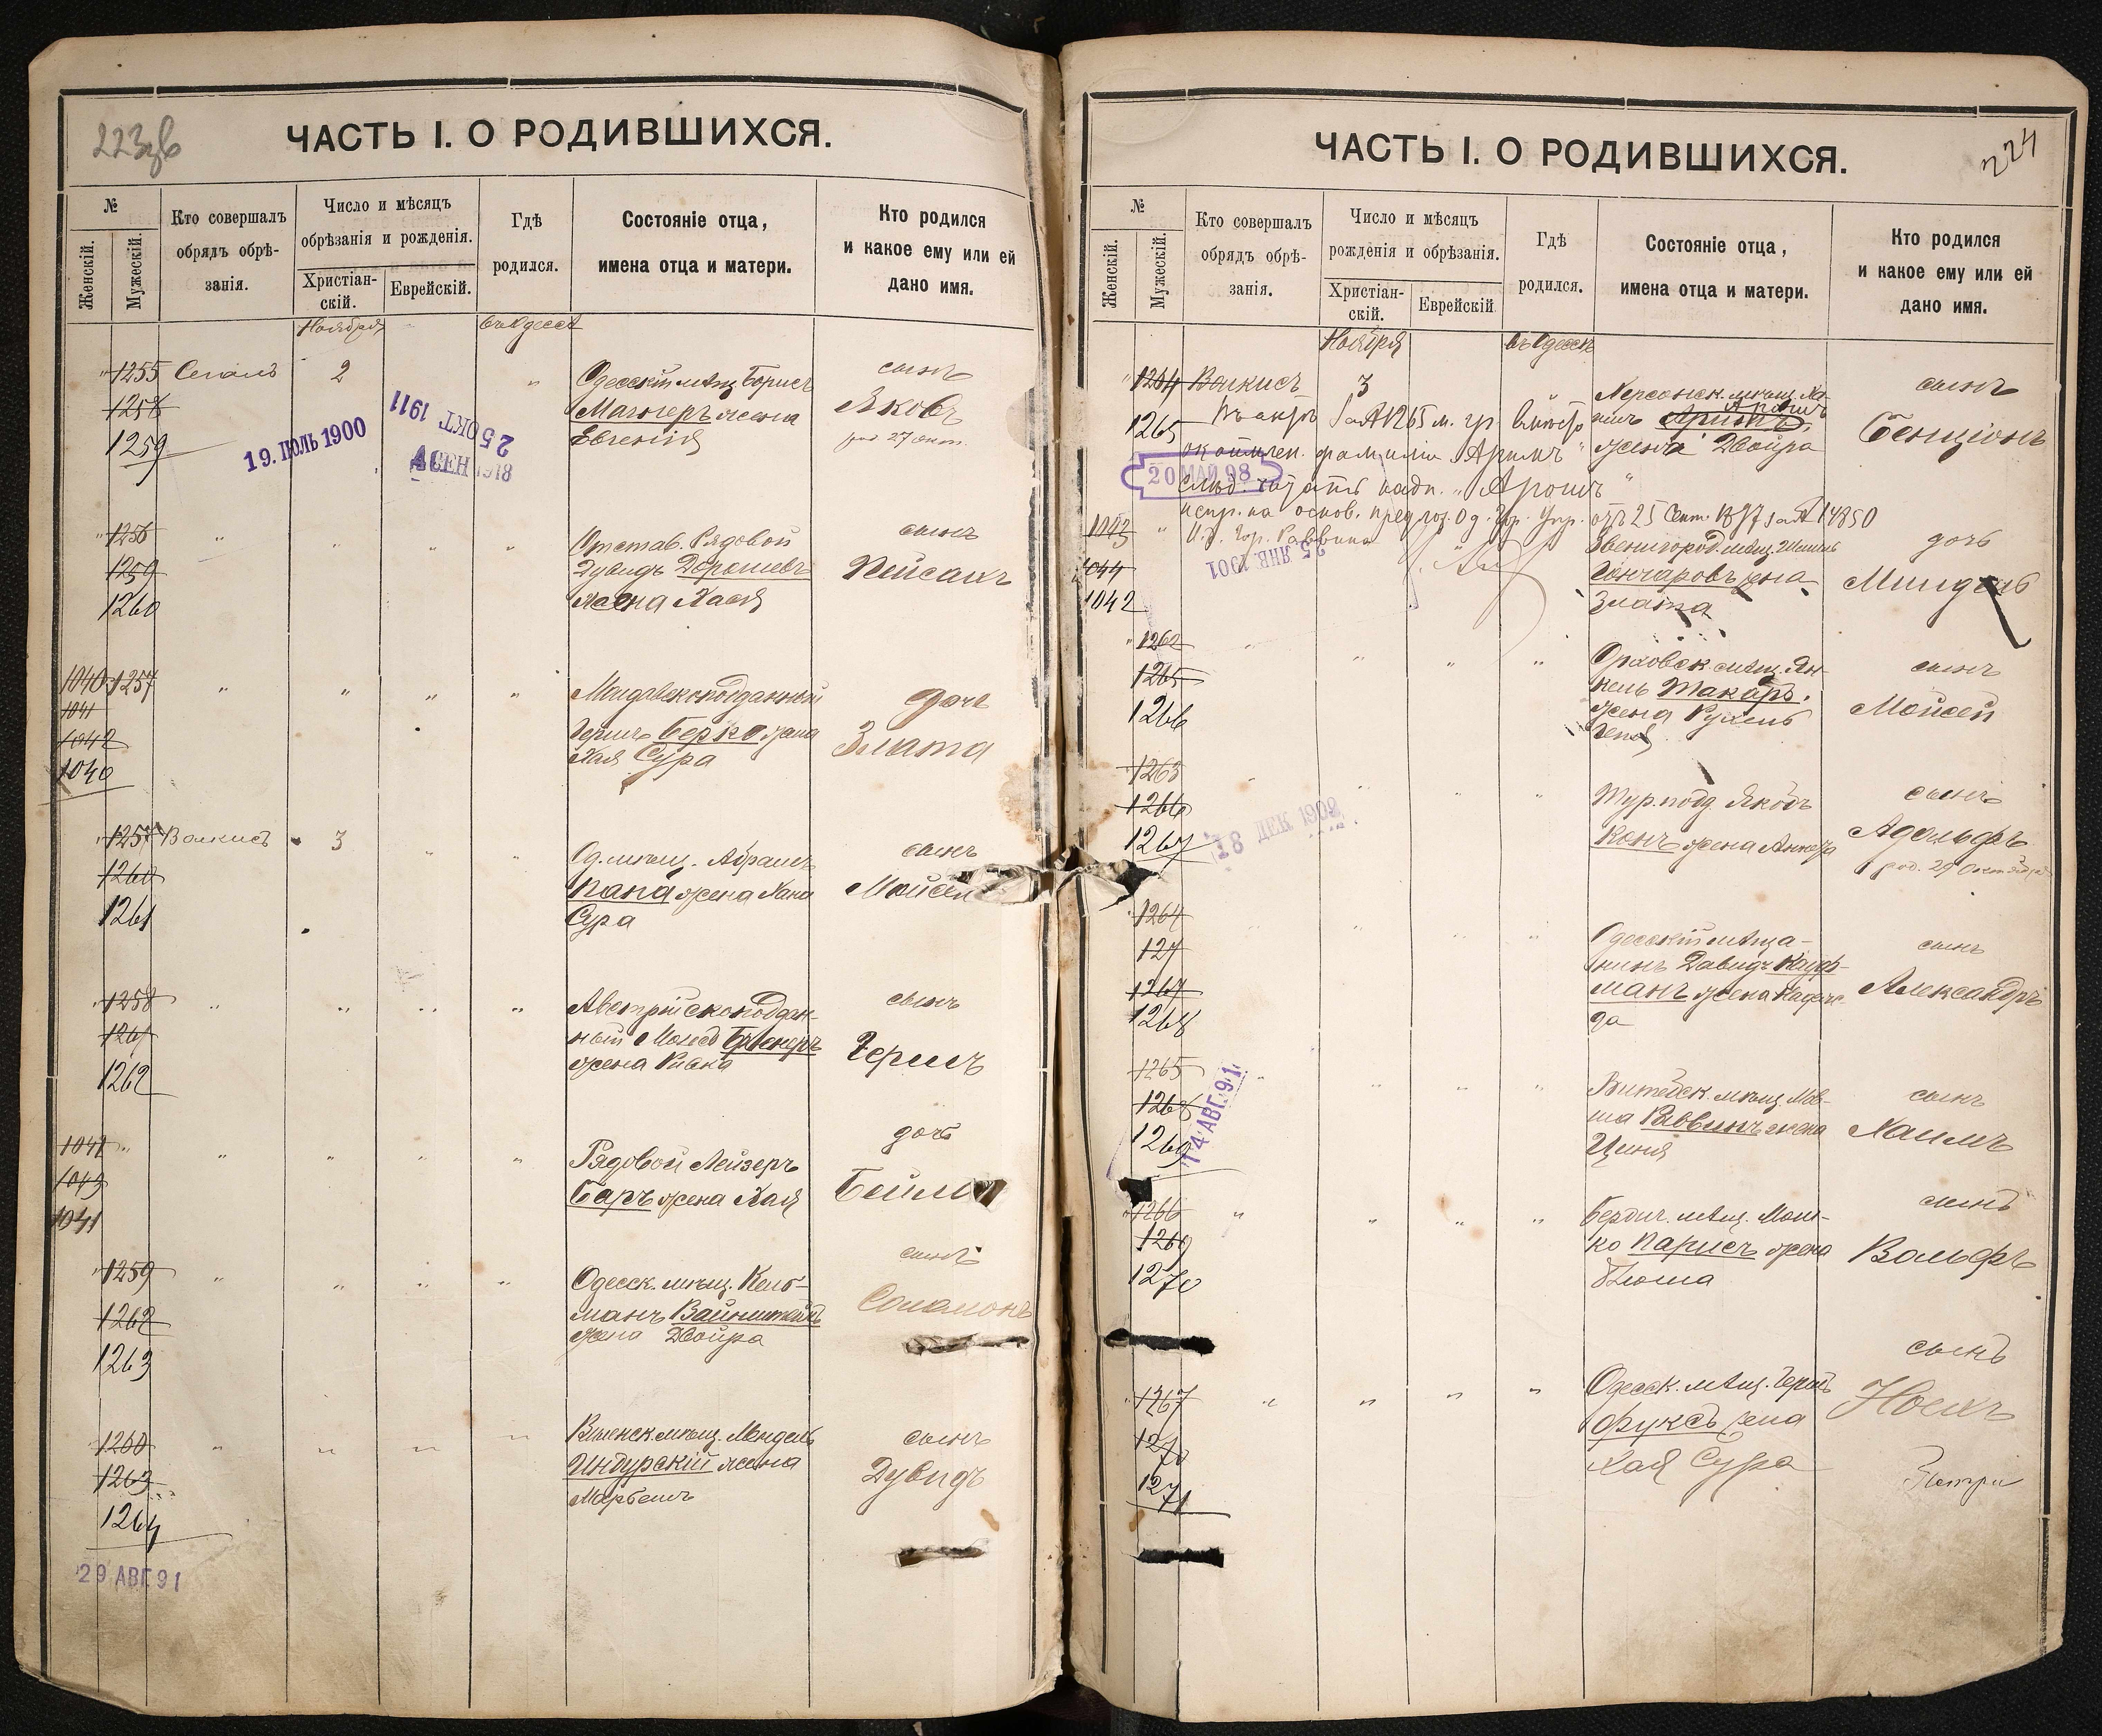 223 об
ЧАСТЬ I. О РОДИВШИХСЯ.
№
Женскій.
Мужескій.
Кто совершалъ
обрядъ обрѣ-
занія.
Число и мѣсяцъ
обрѣзанія и рожденія.
Христіан-
скій.
Еврейскій.
Гдѣ
родился.
Состояніе отца,
имена отца и матери.
Кто родился
и какое ему или ей
дано имя.
Ноября
въ Одессѣ
1255 Сегалъ 2 " Одесскій мѣщ. Борисъ сынъ
1258
жена Яковъ
1259
Евгенія род 27 Окт.
19. ІЮЛЬ 1900
25 ОКТ. 1911
1256 " " " " Отстав. Рядовой сынъ
1259 Дувидъ Дорошевъ Пейсахъ
1260 жена Хася
1040 1257 " " " " дочь
1041
1042 Гершъ Берко жена Злата
1040 Хая Сура
1257 Волкисъ 3 " " Од. мѣщ. Абрамъ сынъ
1260 Папа жена Хана Мойсей
1261 Сура
1258 " " " " Австрійскоподдан-
сынъ
1261 ный
1262 жена Ривка Гершъ
1041 " " " " " Рядовой Лейзеръ дочь
1043 Баръ жена Хая Бейла
1041
1259 " " " " Одесск. мѣщ. Кель- сынъ
1262 манъ Вайнштейнъ Соломонъ
1263 жена Двойра
1260 " " " " мѣщ. Мендель сынъ
1263 Индурскій жена Дувидъ
1264
29 АВГ. 91
224
ЧАСТЬ I. О РОДИВШИХСЯ.
№
Женскій.
Мужескій.
Кто совершалъ
обрядъ обрѣ-
занія.
Число и мѣсяцъ
рожденія и обрѣзанія.
Христіан-
скій.
Еврейскій
Гдѣ
родился.
Состояніе отца,
имена отца и матери.
Кто родился
и какое ему или ей
дано имя.
Ноября
въ Одессѣ
1264 Волкисъ 3 " Херсонск. мѣщ. Ха- сынъ
1265 Въ актѣ за № 1265 м. гр. вмѣсто
Аронъ
жена Двойра Бенціонъ
фамиліи „Аримъ"
20 МАЙ 98
слѣд. читать „Аронъ"
испр. на основ. предлож. Од. Гор. Упр. отъ 25 Сент. 1897 за № 14850
И. д. Гор. Раввина
25 ЯНВ. 1901
1043 " Звенигород. мѣщ. дочь
1044 Гончаровъ жена Миндель
1042 Злата
1262 " " " " мѣщ. Ян- сынъ
1265 кель Токаръ.
1266 жена Рухель Мойсей
Геня
1263 " " " Тур. подд. Якобъ сынъ
1266 Конъ жена Адольфъ
1267 род. 29 Октября
18 ДЕК 1902
1264 " " " " Одесскій мѣща- сынъ
127 нинъ Давидъ Кауф-
1267 манъ жена Надеж- Александръ
1268 да
1265 " " " " Витебск. мѣщ. Мов- сынъ
1268 ша Раввинъ жена Хаимъ
1269 Циня
14 АВГ. 91
1266 " " " " Бердич. мѣщ. Мош- сынъ
1269 ко Парисъ жена Вольфъ
1270 Блюма
1267 " " " " Одесск. мѣщ. Гершъ сынъ
1270 Фуксъ жена Ноехъ
1271 Хая Сура